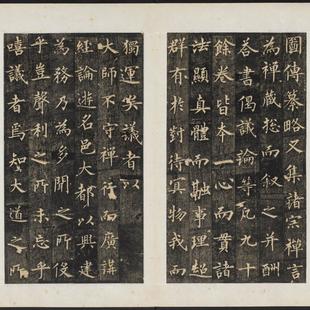 圖傳纂略又集諸宗禪言
為禪蔵捴而叙之并酬
荅書偈議論等凡九十
餘卷皆本一心而貫諸
法顯真體而融事理超
群有於對待冥物我而
獨運矣議者以
大師不守禪行而廣講
經論遊名邑大都以興建
為務乃為多聞之所役
乎豈聲利之所未忘乎
嘻議者焉知大道之所